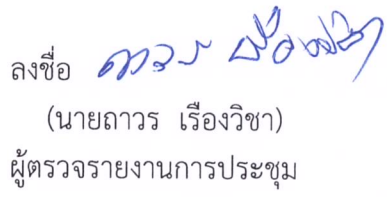 ลงชื่อ ถาวร เรืองวิชา
(นายถาวร เรืองวิชา)
ผู้ตรวจรายงานการประชุม